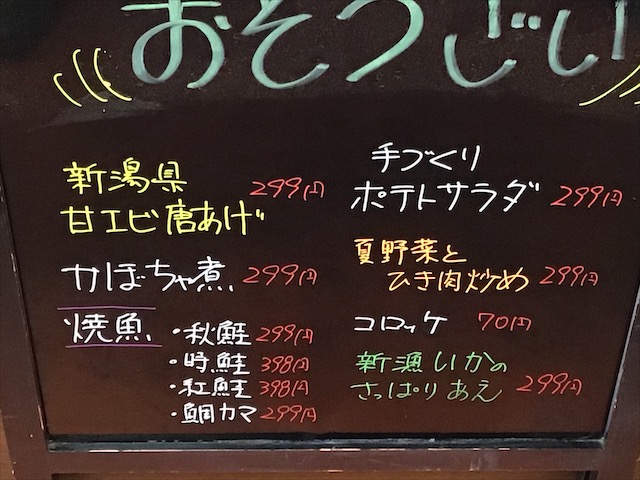 おそうじい
新潟県
甘エビ唐あげ 299円
かぼちゃ煮 299円
焼魚 ・秋鮭 299円
・時鮭 398円
・紅鮭 398円
・鯛カマ 299円
手づくり
ポテトサラダ 299円
夏野菜と
ひき肉炒め 299円
コロッケ 70円
新漁いかの
さっぱりあえ 299円